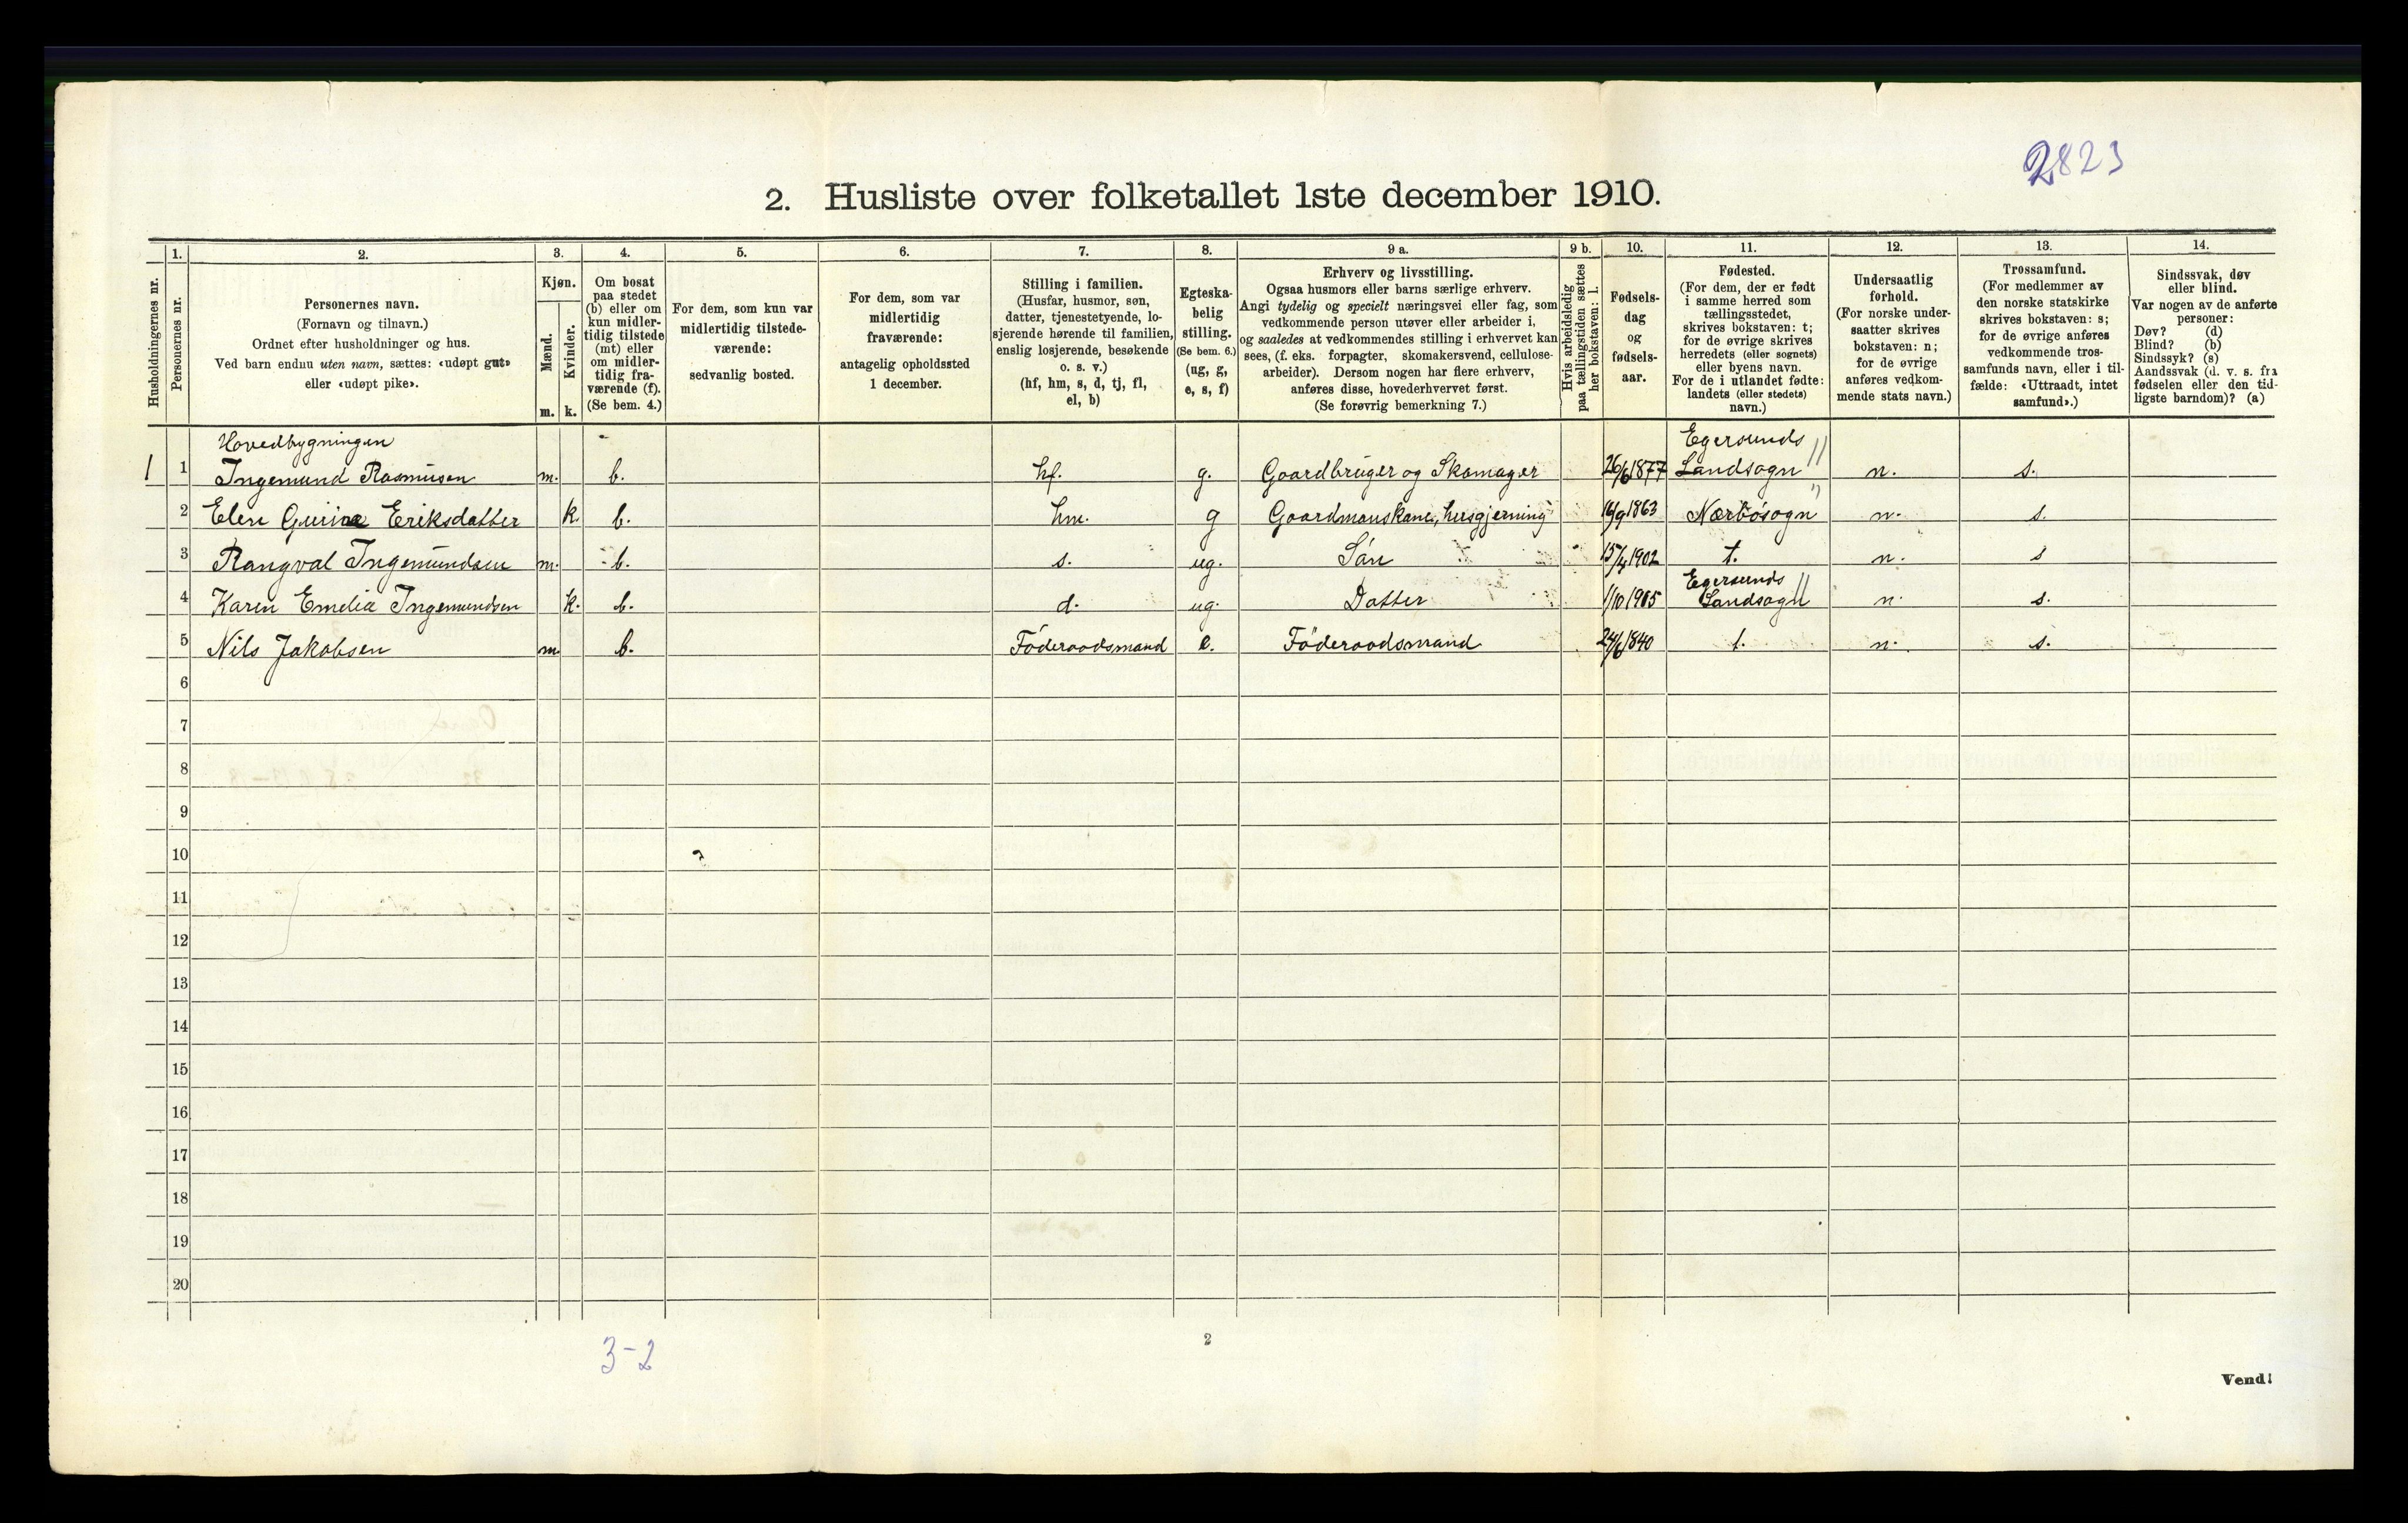 2823
2. Husliste over folketallet 1ste december 1910.
Husholdningernes nr.
1.
Personernes nr.
2.
Personernes navn.
(Fornavn og tilnavn.)
Ordnet efter husholdninger og hus.
Ved barn endnu uten navn, sættes: «udøpt gut»
eller «udøpt pike».
3.
Kjøn.
Mænd.
m.
Kvinder.
k.
4.
Om bosat
paa stedet
(b) eller om
kun midler-
tidig tilstede
(mt) eller
om midler-
tidig fra-
værende (f).
(Se bem. 4.)
5.
For dem, som kun var
midlertidig tilstede-
værende:
sedvanlig bosted.
6.
For dem, som var
midlertidig
fraværende:
antagelig opholdssted
1 december.
7.
Stilling i familien.
(Husfar, husmor, søn,
datter, tjenestetyende, lo-
sjerende hørende til familien,
enslig losjerende, besøkende
o. s. v.)
(hf, hm, s, d, tj, fl,
el, b)
8.
Egteska-
belig
stilling.
(Se bem. 6.)
(ug, g,
e, s, f)
9 a.
Erhverv og livsstilling.
Ogsaa husmors eller barns særlige erhverv.
Angi tydelig og specielt næringsvei eller fag, som
vedkommende person utøver eller arbeider i,
og saaledes at vedkommendes stilling i erhvervet kan
sees, (f. eks. forpagter, skomakersvend, cellulose-
arbeider). Dersom nogen har flere erhverv,
anføres disse, hovederhvervet først.
(Se forøvrig bemerkning 7.)
9 b.
Hvis arbeidsledig
paa tællingstiden sættes
her bokstaven: l.
10.
Fødsels-
dag
og
fødsels-
aar.
11.
Fødested.
(For dem, der er født
i samme herred som
tællingsstedet,
skrives bokstaven: t;
for de øvrige skrives
herredets (eller sognets)
eller byens navn.
For de i utlandet fødte:
landets (eller stedets)
navn.)
12.
Undersaatlig
forhold.
(For norske under-
saatter skrives
bokstaven: n;
for de øvrige
anføres vedkom-
mende stats navn.)
13.
Trossamfund.
(For medlemmer av
den norske statskirke
skrives bokstaven: s;
for de øvrige anføres
vedkommende tros-
samfunds navn, eller i til-
fælde: «Uttraadt, intet
samfund».)
14.
Sindssvak, døv
eller blind.
Var nogen av de anførte
personer:
Døv? (d)
Blind? (b)
Sindssyk? (s)
Aandssvak (d. v. s. fra
fødselen eller den tid-
ligste barndom)? (a)
Hovedbygningen
1 1 Ingemund Rasmusen m. b. hf. g. Gaardbruger og Skomager 26/6 1877 Egersunds Landsogn " n. s.
2 Elen Gurine Eriksdatter k. b. hm. g Gaardmanskone, husgjerning 16/9 1863 Nærbósogn " n. s.
3 Rangval Ingemundsen m. b. s. ug. Són 15/4 1902 t. n. s
4 Karen Emelia Ingemundsen k. b. d. ug. Datter 1/10 1905 Egersunds Landsogn " n. s.
5 Nils Jakobsen m. b. Föderaadsmand e. Föderaadsmand 24/6 1840 t. n. s.
6
7
8
9
10
11
12
13
14
15
16
17
18
19
20
3-2
2
Vend!